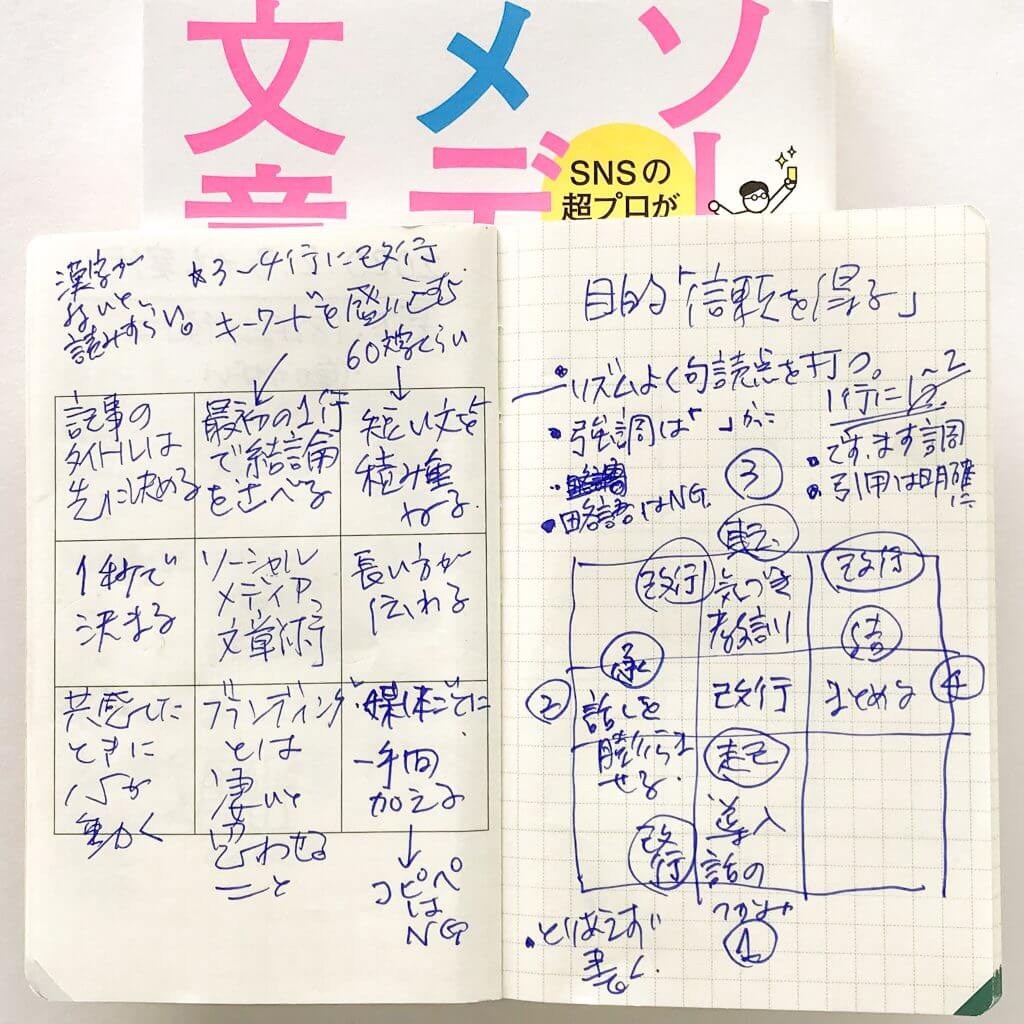 ソー
メデ
文章
SNSの
超プロが
漢字が
ないと、
読みずらい。
☆3〜4行に改行
キーワードを盛り込む
60文字くらい
↓
記事の
タイトルは
先に決める
最初の1行
で結論
を述べる
短い文を
積み重
ねる。
1秒で
決まる
ソーシャル
メディア
文章術
長い方が
伝わる
共感した
ときに
心が
動く
ブランディング
とは
凄いと
思わせる
こと
媒体ごとに
一手間
加える
↓
コピペ
は
NG
目的「信頼を得る」
・リズムよく句読点を打つ。
1行に1〜2
・強調は「 」かに
・略語はNG.
・ですます調
・引用は明確
に
③
転
改行
気づき
教訓
改行
結
まとめる
④
②
承
話しを
膨らま
せる。
改行
改行
起
導入
話の
つかみ
①
・とりあえず
書く.